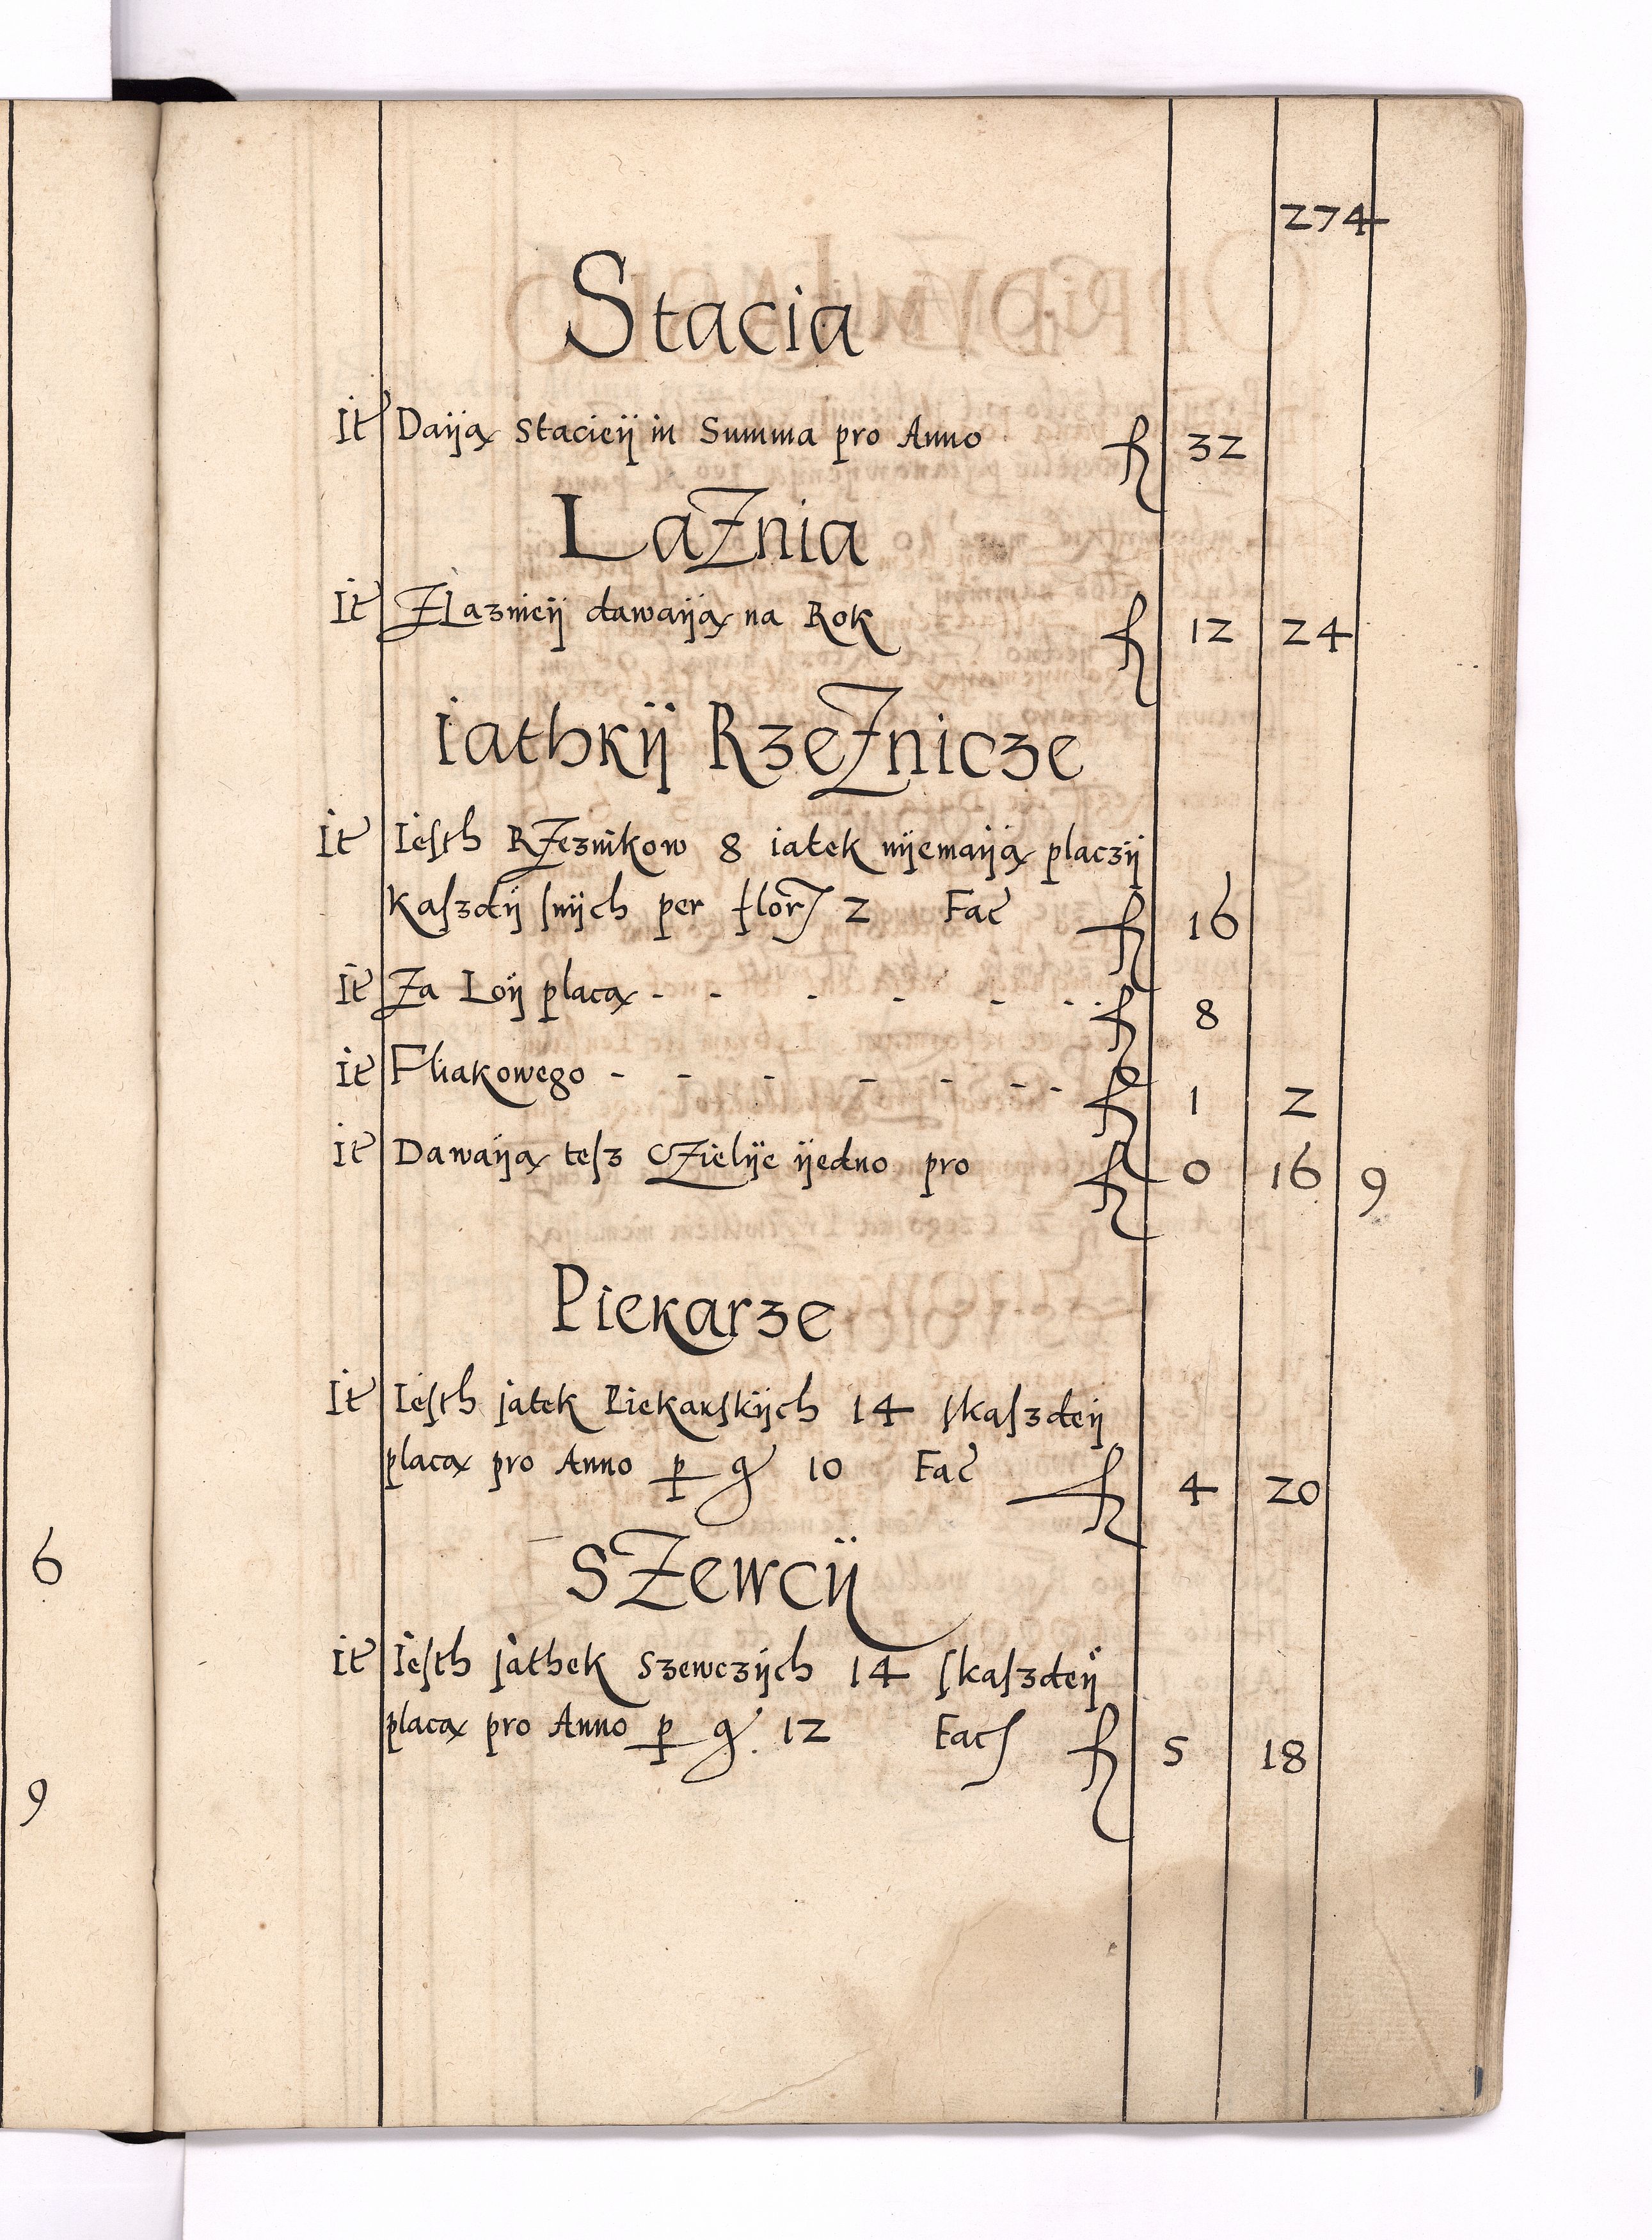 274
Stacia
It Daiją Stacieij in Summa pro Anno fl 32
LaZnia
It ZLaznieij dawaiją na Rok fl 12 24
iathkij RzeZnicze
It Iesth RZeznikow 8 iatek nijemaiją placzij
kaszdij snijch per flor 2 Fac fl 16
It Za Loij placą - - - - - - fl 8
It Fliakowego - - - - - - - fl 1 2
It Dawaiją tesz CZielije ijedno pro fl 0 16 9
Piekarze
It Iesth jatek Piekarskijch 14 skaszdeij
placą pro Anno p g 10 Fac fl 4 20
SZewcij
It Iesth jathek Szewczijch 14 skaszdeij
placą pro Anno p g. 12 Fac fl 5 18
6
9